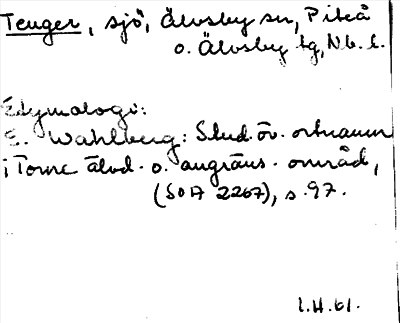 Teuger, sjö, Älvsby sn, Piteå
o. Älvsby tg, Nb. l.
Etymologi:
E. Wahlberg: Stud. öv. ortnamn
i Torne älvd. o. angräns. område,
(SOA 2267), s. 97.
1.H.61.